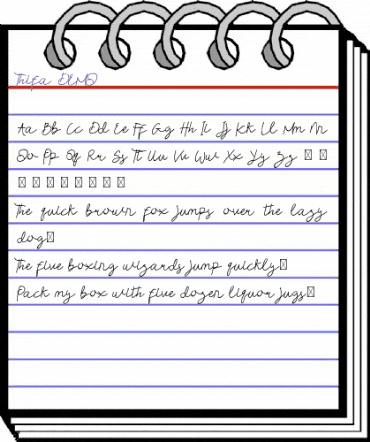 Thifa DEMO
Aa Bb Cc Dd Ee Ff Gg Hh Ii Jj Kk Ll Mm Nn
Oo Pp Qq Rr Ss Tt Uu Vv Ww Xx Yy Zz
The quick brown fox jumps over the lazy
dog
The five boxing wizards jump quickly
Pack my box with five dozen liquor jugs